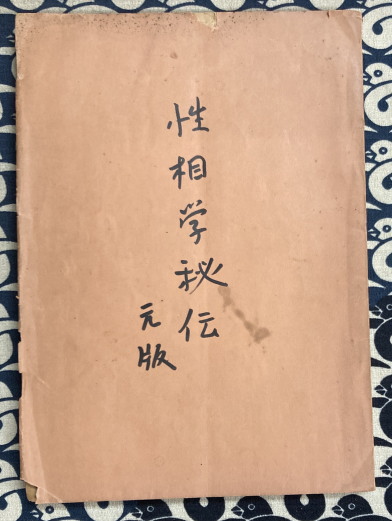 性相学秘伝
元版